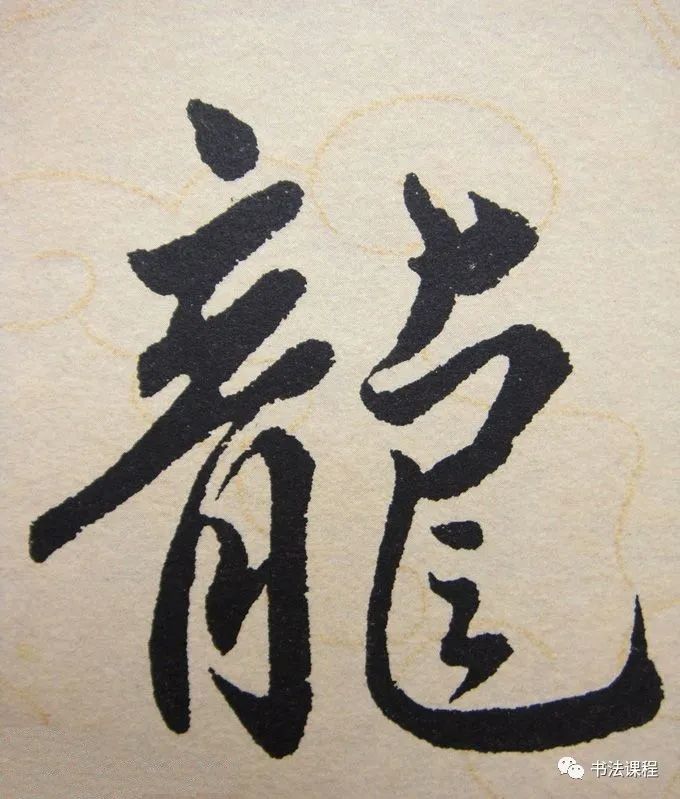 龍
书法课程